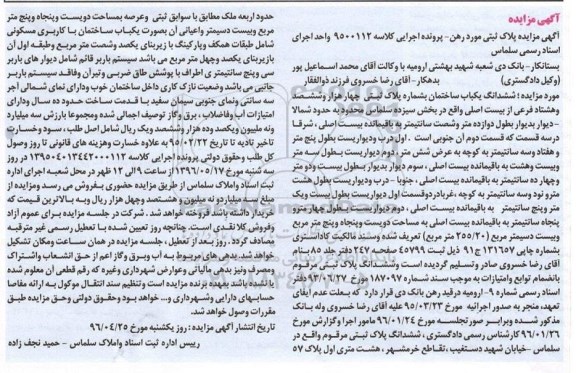 آگهی مزایده
آگهی مزایده پلاک ثبتی مورد رهن - پرونده اجرایی کلاسه ۹۵۰۰۱۱۲ واحد اجرای
اسناد رسمی سلماس
بستانکار - بانک دی شعبه شهید بهشتی ارومیه با وکالت آقای محمد اسماعیل پور
(وکیل دادگستری) بدهکار - آقای رضا خسروی فرزند ذوالفقار
مورد مزایده : ششدانگ یکباب ساختمان بشماره پلاک ثبتی چهار هزار ونهصد
وهشتاد فرعی از بیست اصلی واقع در بخش سیزده سلماس محدود به حدود شمالا
- دیوار بدیوار بطول دوازده متر وشصت سانتیمتر به باقیمانده بیست اصلی ، شرقا
درسه قسمت که قسمت دوم آن جنوبی است ، اول درب ودیواریست بطول پنج متر
و هفتاد وسه سانتیمتر به کوچه به عرض شش متر ، دوم دیواریست بطول سه متر
وبیست وهشت به باقیمانده بیست اصلی ، سوم دیوار بدیوار بطول بیست ودو متر
وچهار ده سانتیمتر به باقیمانده بیست اصلی ، جنوبا - درب ودیواریست بطول هشت
مترو نود وسه سانتیمتر به کوچه ، غربادردوقسمت اول دیواریست بطول بیست ویک
متر وپنج سانتیمتر به باقیمانده بیست اصلی ، دوم دیواریست بطول چهار مترو
پنجاه سانتیمتر به باقیمانده بیست اصلی به مساحت دویست وپنجاه وپنج متر مربع
وبیست دسیمتر مربع (۲۵۵/۲۰ متر مربع) تعریف شده وسند مالکیت کاداستری
شماره چاپی ۱۳۱۶۵۷ ج/۹۱ ذیل ثبت ۴۵۷۹۹ صفحه ۲۴۷ دفتر جلد ۸۵ بنام
آقای رضا خسروی صادر وتسلیم گردیده است وششدانگ پلاک ثبتی مرقوم
بانضمام توابع وامتیازات به موجب سند شماره ۱۸۷۰۹۷ مورخ ۹۳/۰۶/۲۷ دفتر
اسناد رسمی شماره ۹-ارومیه درقید رهن بانک دی قرار دارد که بعلت عدم ایفای
تعهد، منجر به صدور اجرائیه مورخ ۹۵/۰۳/۲۳ علیه آقای رضا خسروی وله بانک
مذکور شده وبرابر صورتجلسه مورخ ۹۶/۰۱/۲۴ مامور اجرا وگزارش مورخ
۹۶/۰۱/۲۶ کارشناس رسمی دادگستری ، ششدانگ پلاک ثبتی مرقوم واقع در
سلماس -خیابان شهید دستغیب ، تقاطع خرمشهر ، هشت متری اول پلاک ۵۷
حدود اربعه ملک مطابق با سوابق ثبتی وعرصه بمساحت دویست وپنجاه وپنج متر
مربع وبیست دسیمتر واعیانی آن بصورت یکباب ساختمان با کاربری مسکونی
شامل طبقات همکف وپارکینگ با زیربنای یکصد وشصت متر مربع وطبقه اول آن
بازیربنای یکصد وچهل متر مربع می باشد سیستم باربر قائم شامل دیوار های باربر
سی وپنج سانتیمتری اطراف با پوشش طاق ضربی وتیرآن وفاقد سیستم باربر
جانبی می باشد وضعیت نازک کاری داخل ساختمان خوب ودارای نمای شمالی آجر
سه سانتی ونمای جنوبی سیمان سفید با قدمت ساخت حدود ده سال ودارای
امتیازات آب وفاضلاب ، برق وگاز توصیف اجمالی شده ومجموعا بارزش سه میلیارد
ونه ملیون ویکصد وده هزار وششصد ویک ریال شامل اصل طلب ، سود وخسارت
تاخیر تادیه تا تاریخ ۹۵/۰۲/۲۲ به علاوه خسارت وهزینه های قانونی تا روز وصول
کل طلب وحقوق دولتی پرونده اجرایی کلاسه ۱۳۹۵۰۴۰۱۳۴۴۲۰۰۰۱۱۲ در روز
سه شنبه مورخ ۱۳۹۶/۰۵/۱۷ از ساعت ۹ الی ۱۲ ظهر در محل شعبه اجرای اداره
ثبت اسناد واملاک سلماس از طریق مزایده حضوری بفروش می رسد ومزایده از
مبلغ سه میلیارد نه میلیون وهشتصد وچهل هزار ریال وبه بالاترین قیمت که
خریدار داشته باشد فروخته خواهد شد. شرکت در جلسه مزایده برای عموم آزاد
وفروش کلا نقدی است. چنانچه روز تعیین شده با تعطیل رسمی غیر مترقبه
مصادف گردد . روز بعد از تعطیل ، جلسه مزایده در همان ساعت ومکان تشکیل
خواهد شد. بدهی های مربوط به آب وبرق وگاز اعم از حق انشعاب واشتراک
ومصرف ونیز بدهی مالیاتی وعوارض شهرداری وغیره که رقم قطعی آن معلوم شده
یا نشده باشد بعهده برنده مزایده است وتنظیم سند انتقال موکول به ارائه مفاصا
حسابهای دارایی وشهرداری و... خواهد بود وحقوق دولتی وحق مزایده طبق
مقررات وصول خواهد شد.
تاریخ انتشار آگهی مزایده : روز یکشنبه مورخ ۹۶/۰۴/۲۵
رییس اداره ثبت اسناد واملاک سلماس - حمید نجف زاده